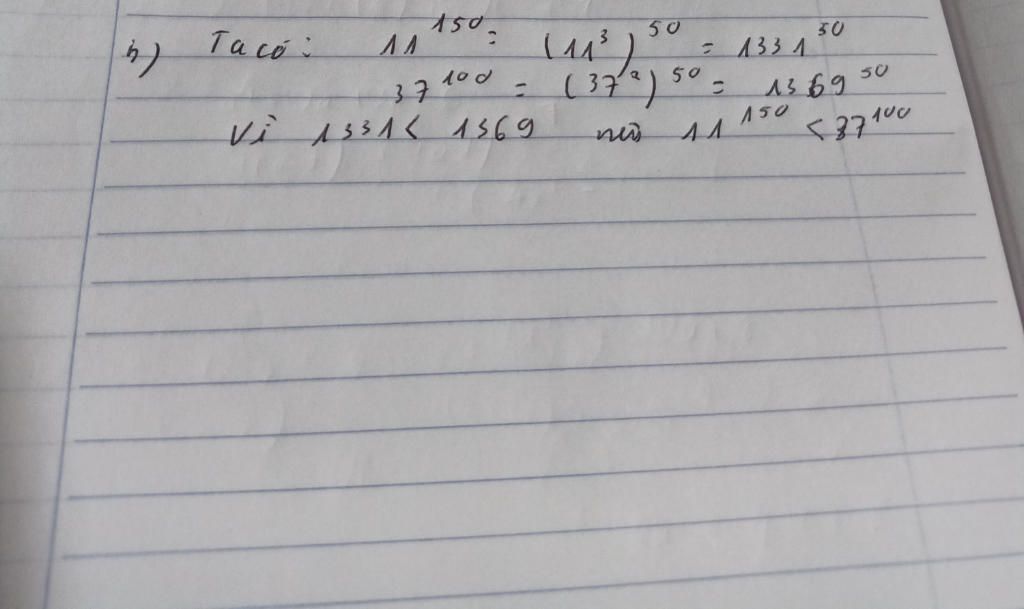 h) Ta có: 11^150 = (11^3)^50 = 1331^50
37^100 = (37^2)^50 = 1369^50
Vì 1331 < 1369 nên 11^150 < 37^100